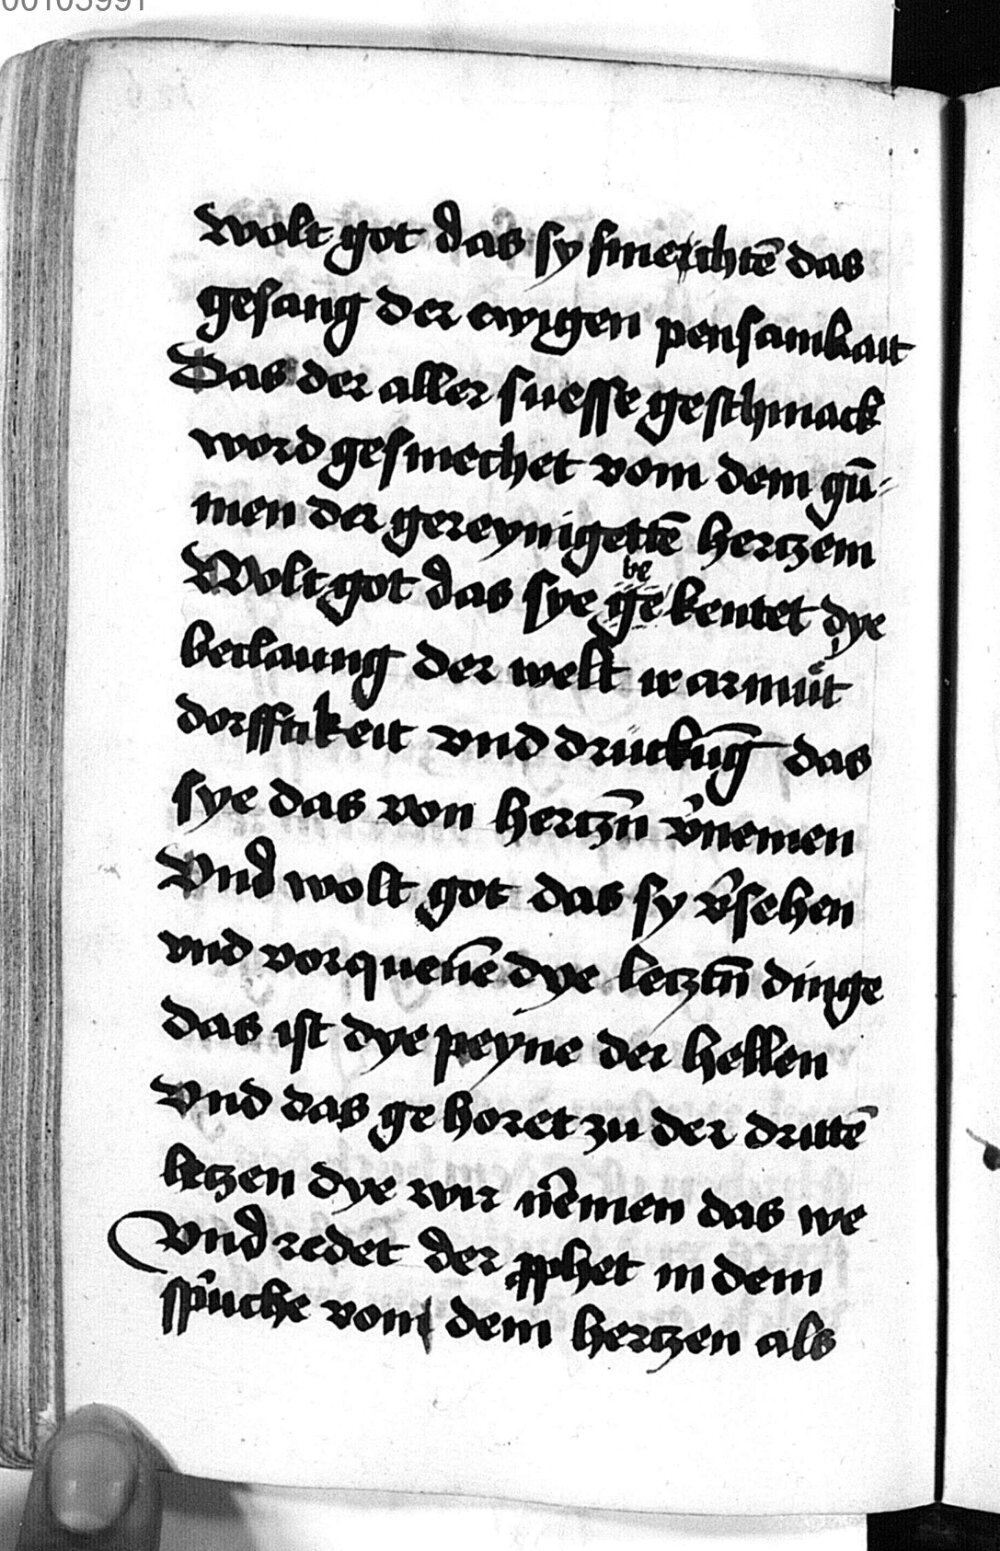 00103991
wolt got das sy smechtē das
gesang der ewigen pensamkait
Das der aller suesse geschmack
word gesmechet vom dem gū-
men der gereynigettē hertzem
Wolt got das sye be kentet dye
betlaung der welt ir armut
dorfftikeit vnd druckūg das
sye das von hertzn̄ v̉nemen
Vnd wolt got das sy v̉sehen
vnd vorquene dye letztn̄ dinge
das ist dye peyne der hellen
Vnd das ge horet zu der drittē
letzen dye wir nēmen das we
Vnd redet der ꝓphet in dem
spruche vom dem hertzen als